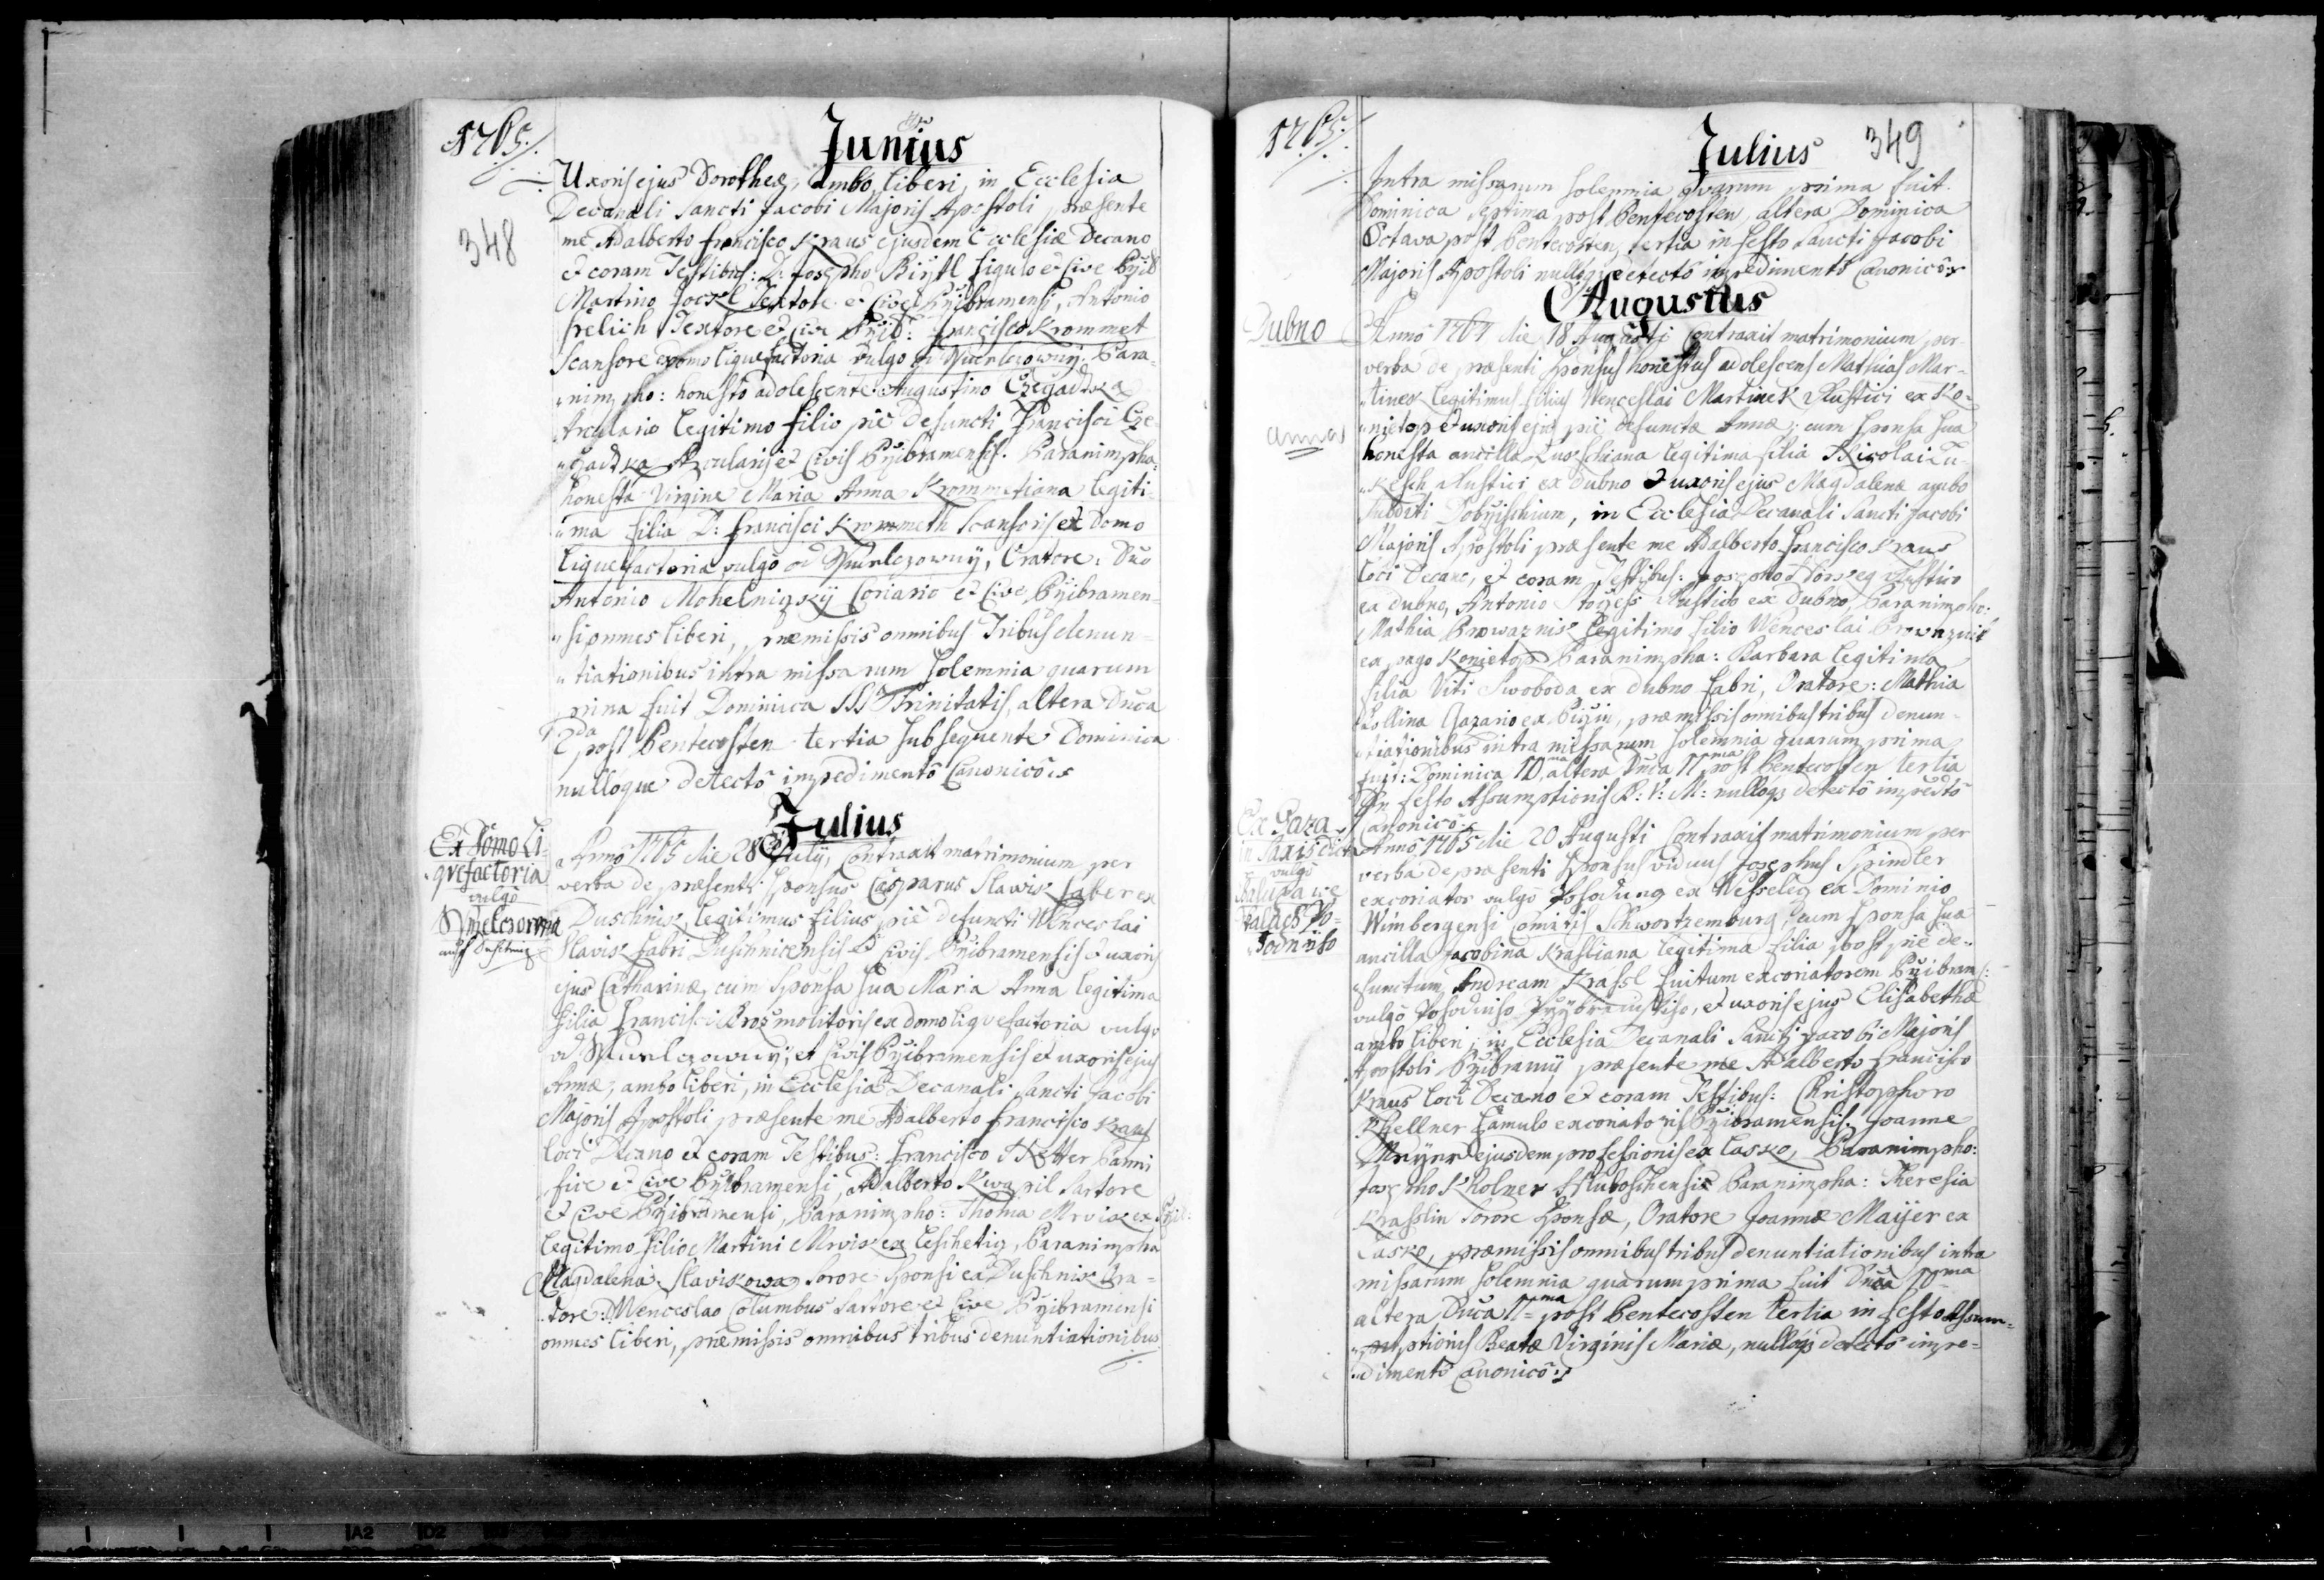 1765
Junius
Uxoris ejus Dorotheæ, ambo liberi, in Ecclesia
Decanali Sancti Jacobi Majoris Apostoli præsente
348
me Adalberto Francisco Kraus ejusdem Ecclesiæ Decano
et coram Testibus: D: Josepho figulo et Cive
Martino Textore et Cive Przibramensi, Antonio
Textore et Cive Francisco Krommet
Scansore ex domo liquefactoria vulgo Para-
nimpho: honesto adolescente Augustino Czegadtka
Arculario legitimo filio piè defuncti Francisci Cze-
gadtka Arcularii et Civis Przibramensis. Paranimpha:
honesta Virgine Maria Anna Krommetiana legiti-
ma filia D: Francisci Krommeth Scansoris ex Domo
liquefactoria vulgo od Oratore: Dno
Antonio Mohelnizky Coriario et Cive Przibramen-
si omnes liberi, præmissis omnibus Tribus denun-
tiationibus intra missarum solemnia quarum
prima fuit Dominica SSS Trinitatis, altera Dnca
2da post Pentecosten tertia subsequente Dominica
nullóque detectô impedimentô Canonicô
Julius
Ex Domo Li-
quefactoria
vulgô
Anno 1765 die 28 July, Contraxit matrimonium per
verba de præsenti Sponsus Casparus Slawik Faber ex
Duschnik, legitimus filius piè defuncti Wenceslai
Slavik fabri Duschnicensis et Civis Przibramensis et uxoris
ejus Catharinæ, cum Sponsa sua Maria Anna legitima
filia Francisci molitoris ex domo liquefactoria vulgo
od et Civis Przibramensis et uxoris ejus
Annæ, ambo liberi, in Ecclesia Decanali Sancti Jacobi
Majoris Apostoli præsente me Adalberto Francisco Kraus
loci Decano et coram Testibus: Francisco Panni
fice et Cive Przibramensi, Adalberto Kwapil Sartore
et Cive Przibramensi, Paranimpho: Thoma Mrvik ex
legitimo filio Martini Mrvik ex Leschetiz, Paranimpha
Magdalena Slavikowa Sorore Sponsi ex Duschnik Ora-
tore: Wenceslao Columbus Sartore et Cive Przibramensi
omnes liberi, præmissis omnibus tribus denuntiationibus
1765
Julius 349
Intra missarum solemnia quarum prima fuit
Dominica septima post Pentecosten, altera Dominica
Octava post Pentecosten, tertia in festo Sancti Jacobi
Majoris Apostoli detectô impedimentô Canonicô
Augustus
Dubno
Anno die 18 Augusti Contraxit matrimonium per
verba de præsenti Sponsus honestus adolescens Mathias Mar-
tinek legitimus filius Wenceslai Martinek Rustici ex Ko-
nietop et uxoris ejus piè defunctæ Annæ, cum sponsa sua
Anna
honesta ancilla legitima filia Nicolai Lu-
Rustici ex Dubno et uxoris ejus Magdalenæ ambo
subditi in Ecclesia Decanali Sancti Jacobi
Majoris Apostoli præsente me Adalberto Francisco Kraus
loci Decano, et coram Testibus: Josepho Rustico
ex Dubno, Antonio Rustico ex Dubno, Paranimpho:
Mathia Prowaznik legitimo filio Wenceslai Prowaznik
ex pago Konietop Paranimpha: Barbara legitima
filia Viti Swoboda ex Dubno fabri, Oratore: Mathia
ex præmissis omnibus tribus denun-
tiationibus intra missarum solemnia quarum prima
fuit: Dominica 10ma altera Dnca 11ma post Pentecosten tertia
In festo Assumptionis B: V: M: detectô
Canonicô
in Saxis dicta
vulgo
Anno 1765 die 20 Augusti Contraxit matrimonium per
verba de præsenti Sponsus viduus Josephus Spindler
excoriator vulgo ex ex Dominio
Wimbergensi Comitis Schwortzemburg, cum Sponsa sua
ancilla Jacobina Krasliana legitima filia post piè de-
functum Andream Krassl excoriatorem
vulgô et uxoris ejus Elisabethæ
ambo liberi, in Ecclesia Decanali Sancti Jacobi Majoris
Apostoli præsente me Adalberto Francisco
Kraus loci Decano et coram Testibus: Christophoro
Khellner famulo excoriatoris Przibramensis: Joanne
ejusdem professionis ex Lasko, Paranimpho:
Josepho Kholner Paranimpha: Theresia
Krasslin Sorore Sponsæ, Oratore Joanne Maijer ex
Lasko, præmissis omnibus tribus denuntiationibus intra
missarum solemnia quarum prima fuit Dnca 10ma
altera Dnca 11ma post Pentecosten tertia in festo Assum-
ptionis Beatæ Virginis Mariæ, detectô impe-
dimentô Canonicô